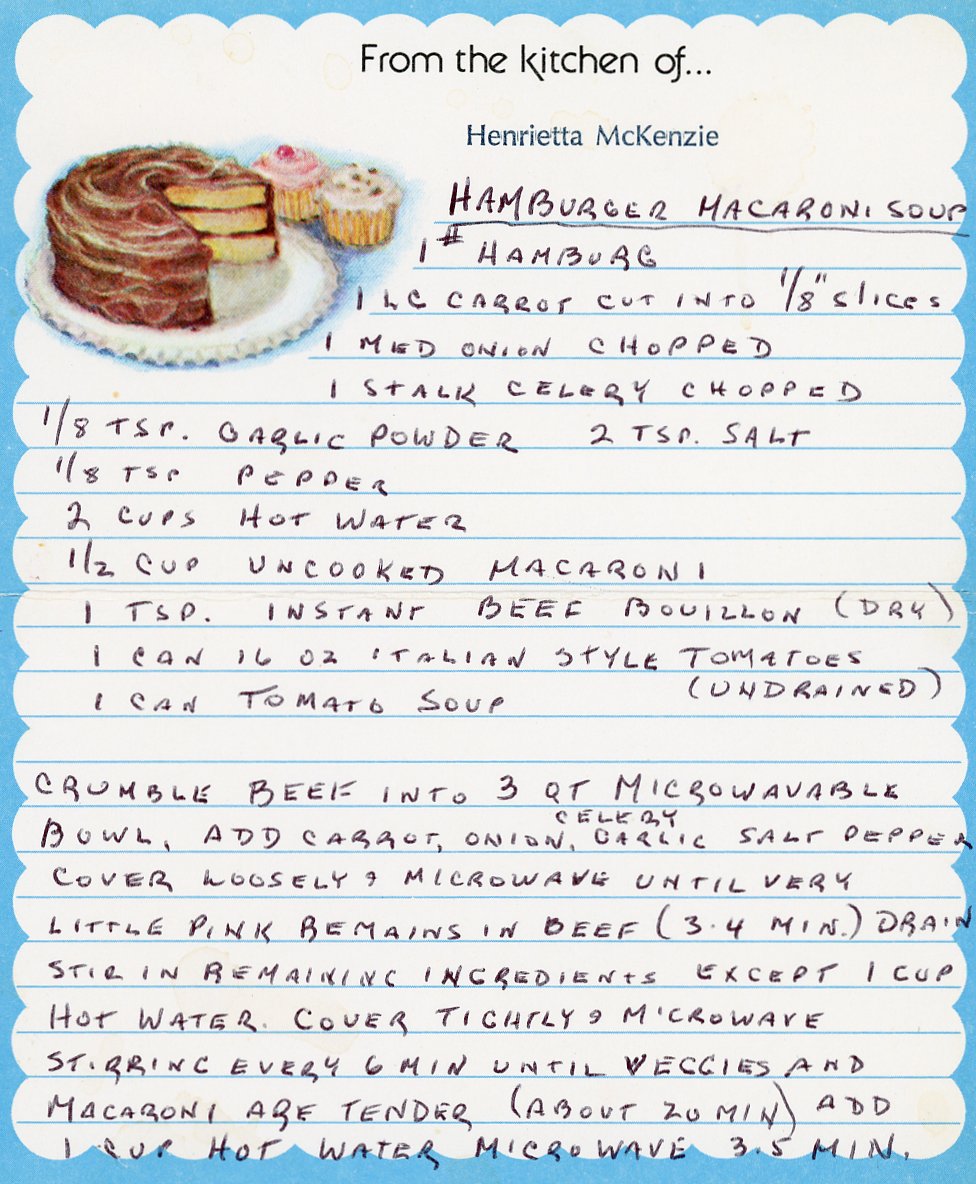 From the kitchen of...
Henrietta McKenzie
HAMBURGER MACARONI SOUP
1 # HAMBURG
1 LG CARROT CUT INTO 1/8" SLICES
1 MED ONION CHOPPED
1 STALK CELERY CHOPPED
1/8 TSP. GARLIC POWDER 2 TSP. SALT
1/8 TSP PEPPER
2 CUPS HOT WATER
1/2 CUP UNCOOKED MACARONI
1 TSP. INSTANT BEEF BOUILLON (DRY)
1 CAN 16 OZ ITALIAN STYLE TOMATOES
(UNDRAINED)
1 CAN TOMATO SOUP
CRUMBLE BEEF INTO 3 QT MICROWAVABLE
CELERY
BOWL, ADD CARROT, ONION, GARLIC SALT PEPPER
COVER LOOSELY & MICROWAVE UNTIL VERY
LITTLE PINK REMAINS IN BEEF (3-4 MIN.) DRAIN
STIR IN REMAINING INGREDIENTS EXCEPT 1 CUP
HOT WATER. COVER TIGHTLY & MICROWAVE
STIRRING EVERY 6 MIN UNTIL VEGGIES AND
MACARONI ARE TENDER (ABOUT 20 MIN) ADD
1 CUP HOT WATER MICROWAVE 3-5 MIN.